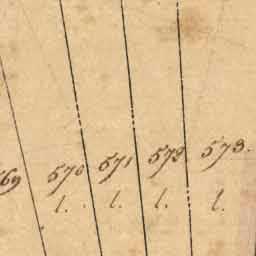 569 570 571 572 573.
l. l. l. l.